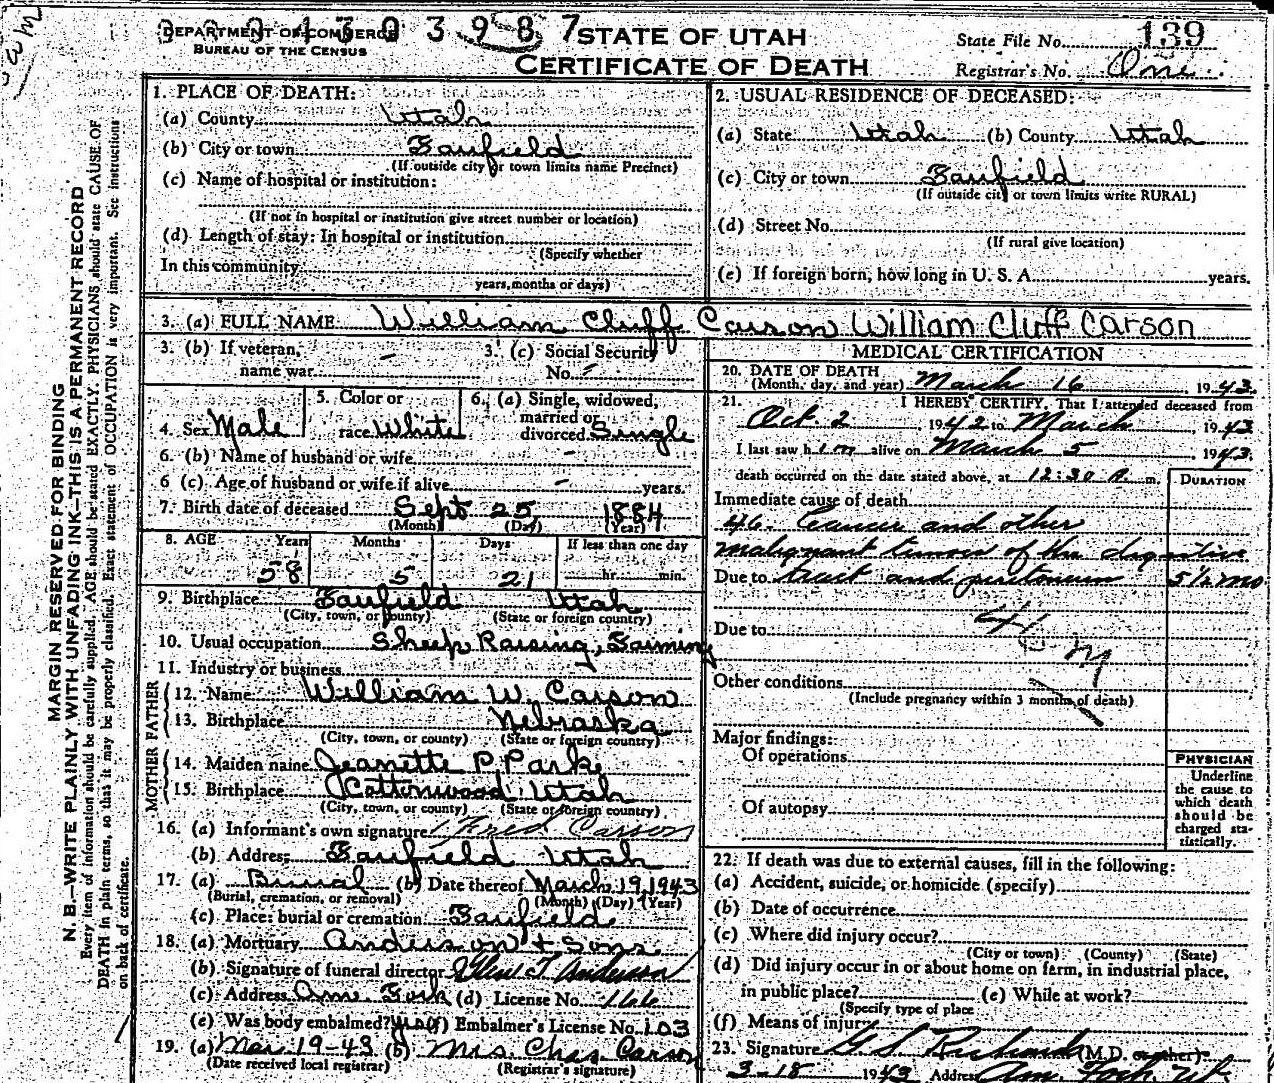 DEPARTMENT OF COMMERCE
BUREAU OF THE CENSUS
STATE OF UTAH
CERTIFICATE OF DEATH
State File No. 139
Registrar's No. One
1. PLACE OF DEATH:
(a) County Utah
(b) City or town Fairfield
(If outside city or town limits name Precinct)
(c) Name of hospital or institution:
(If not in hospital or institution give street number or location)
(d) Length of stay: In hospital or institution
(Specify whether
In this community
years, months or days)
2. USUAL RESIDENCE OF DECEASED:
(a) State Utah (b) County Utah
(c) City or town Fairfield
(If outside city or town limits write RURAL)
(d) Street No.
(If rural give location)
(e) If foreign born, how long in U. S. A. years.
3. (a) FULL NAME William Cluff Carson William Cluff Carson
3. (b) If veteran, name war -
3. (c) Social Security No. -
4. Sex Male
5. Color or race White
6. (a) Single, widowed, married or divorced Single
6. (b) Name of husband or wife -
6 (c) Age of husband or wife if alive - years.
7. Birth date of deceased Sept 25 1884
(Month) (Day) (Year)
8. AGE Years Months Days If less than one day
58 5 21 hr. min.
9. Birthplace Fairfield Utah
(City, town, or county) (State or foreign country)
10. Usual occupation Sheep Raising, Farming
11. Industry or business
FATHER
12. Name William W. Carson
13. Birthplace Nebraska
(City, town, or county) (State or foreign country)
MOTHER
14. Maiden name Jeanette P Park
15. Birthplace Cottonwood Utah
(City, town, or county) (State or foreign country)
16. (a) Informant's own signature Fred Carson
(b) Address Fairfield Utah
17. (a) Burial (b) Date thereof March 19, 1943
(Burial, cremation, or removal) (Month) (Day) (Year)
(c) Place: burial or cremation Fairfield
18. (a) Mortuary Anderson & Sons
(b) Signature of funeral director Glen T Anderson
(c) Address Am. Fork (d) License No. 166
(e) Was body embalmed? yes (f) Embalmer's License No. 103
19. (a) Mar. 19-43 (b) Mrs. Chas. Carson
(Date received local registrar) (Registrar's signature)
MEDICAL CERTIFICATION
20. DATE OF DEATH
(Month, day, and year) March 16, 1943.
21. I HEREBY CERTIFY, That I attended deceased from
Oct. 2, 1942 to March, 1943
I last saw h im alive on March 5, 1943.
death occurred on the date stated above, at 12:30 A. m.
DURATION
Immediate cause of death
46. Cancer and other
malignant tumors of the digestive
Due to tract and peritoneum 5 1/2 mo
Due to
Other conditions
(Include pregnancy within 3 months of death)
Major findings:
Of operations
Of autopsy
PHYSICIAN
Underline
the cause to
which death
should be
charged sta-
tistically.
22. If death was due to external causes, fill in the following:
(a) Accident, suicide, or homicide (specify)
(b) Date of occurrence
(c) Where did injury occur?
(City or town) (County) (State)
(d) Did injury occur in or about home on farm, in industrial place,
in public place? (e) While at work?
(Specify type of place
(f) Means of injury
23. Signature G S Richards (M.D. or other)
3-18 1943 Address Am. Fork Ut
MARGIN RESERVED FOR BINDING
N. B.—WRITE PLAINLY WITH UNFADING INK—THIS IS A PERMANENT RECORD
Every item of information should be carefully supplied. AGE should be stated EXACTLY. PHYSICIANS should state CAUSE OF
DEATH in plain terms, so that it may be properly classified. Exact statement of OCCUPATION is very important. See instructions
on back of certificate.